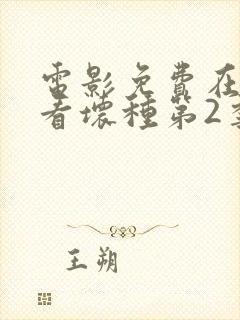 電影免費在
看壞種第2季
王朔